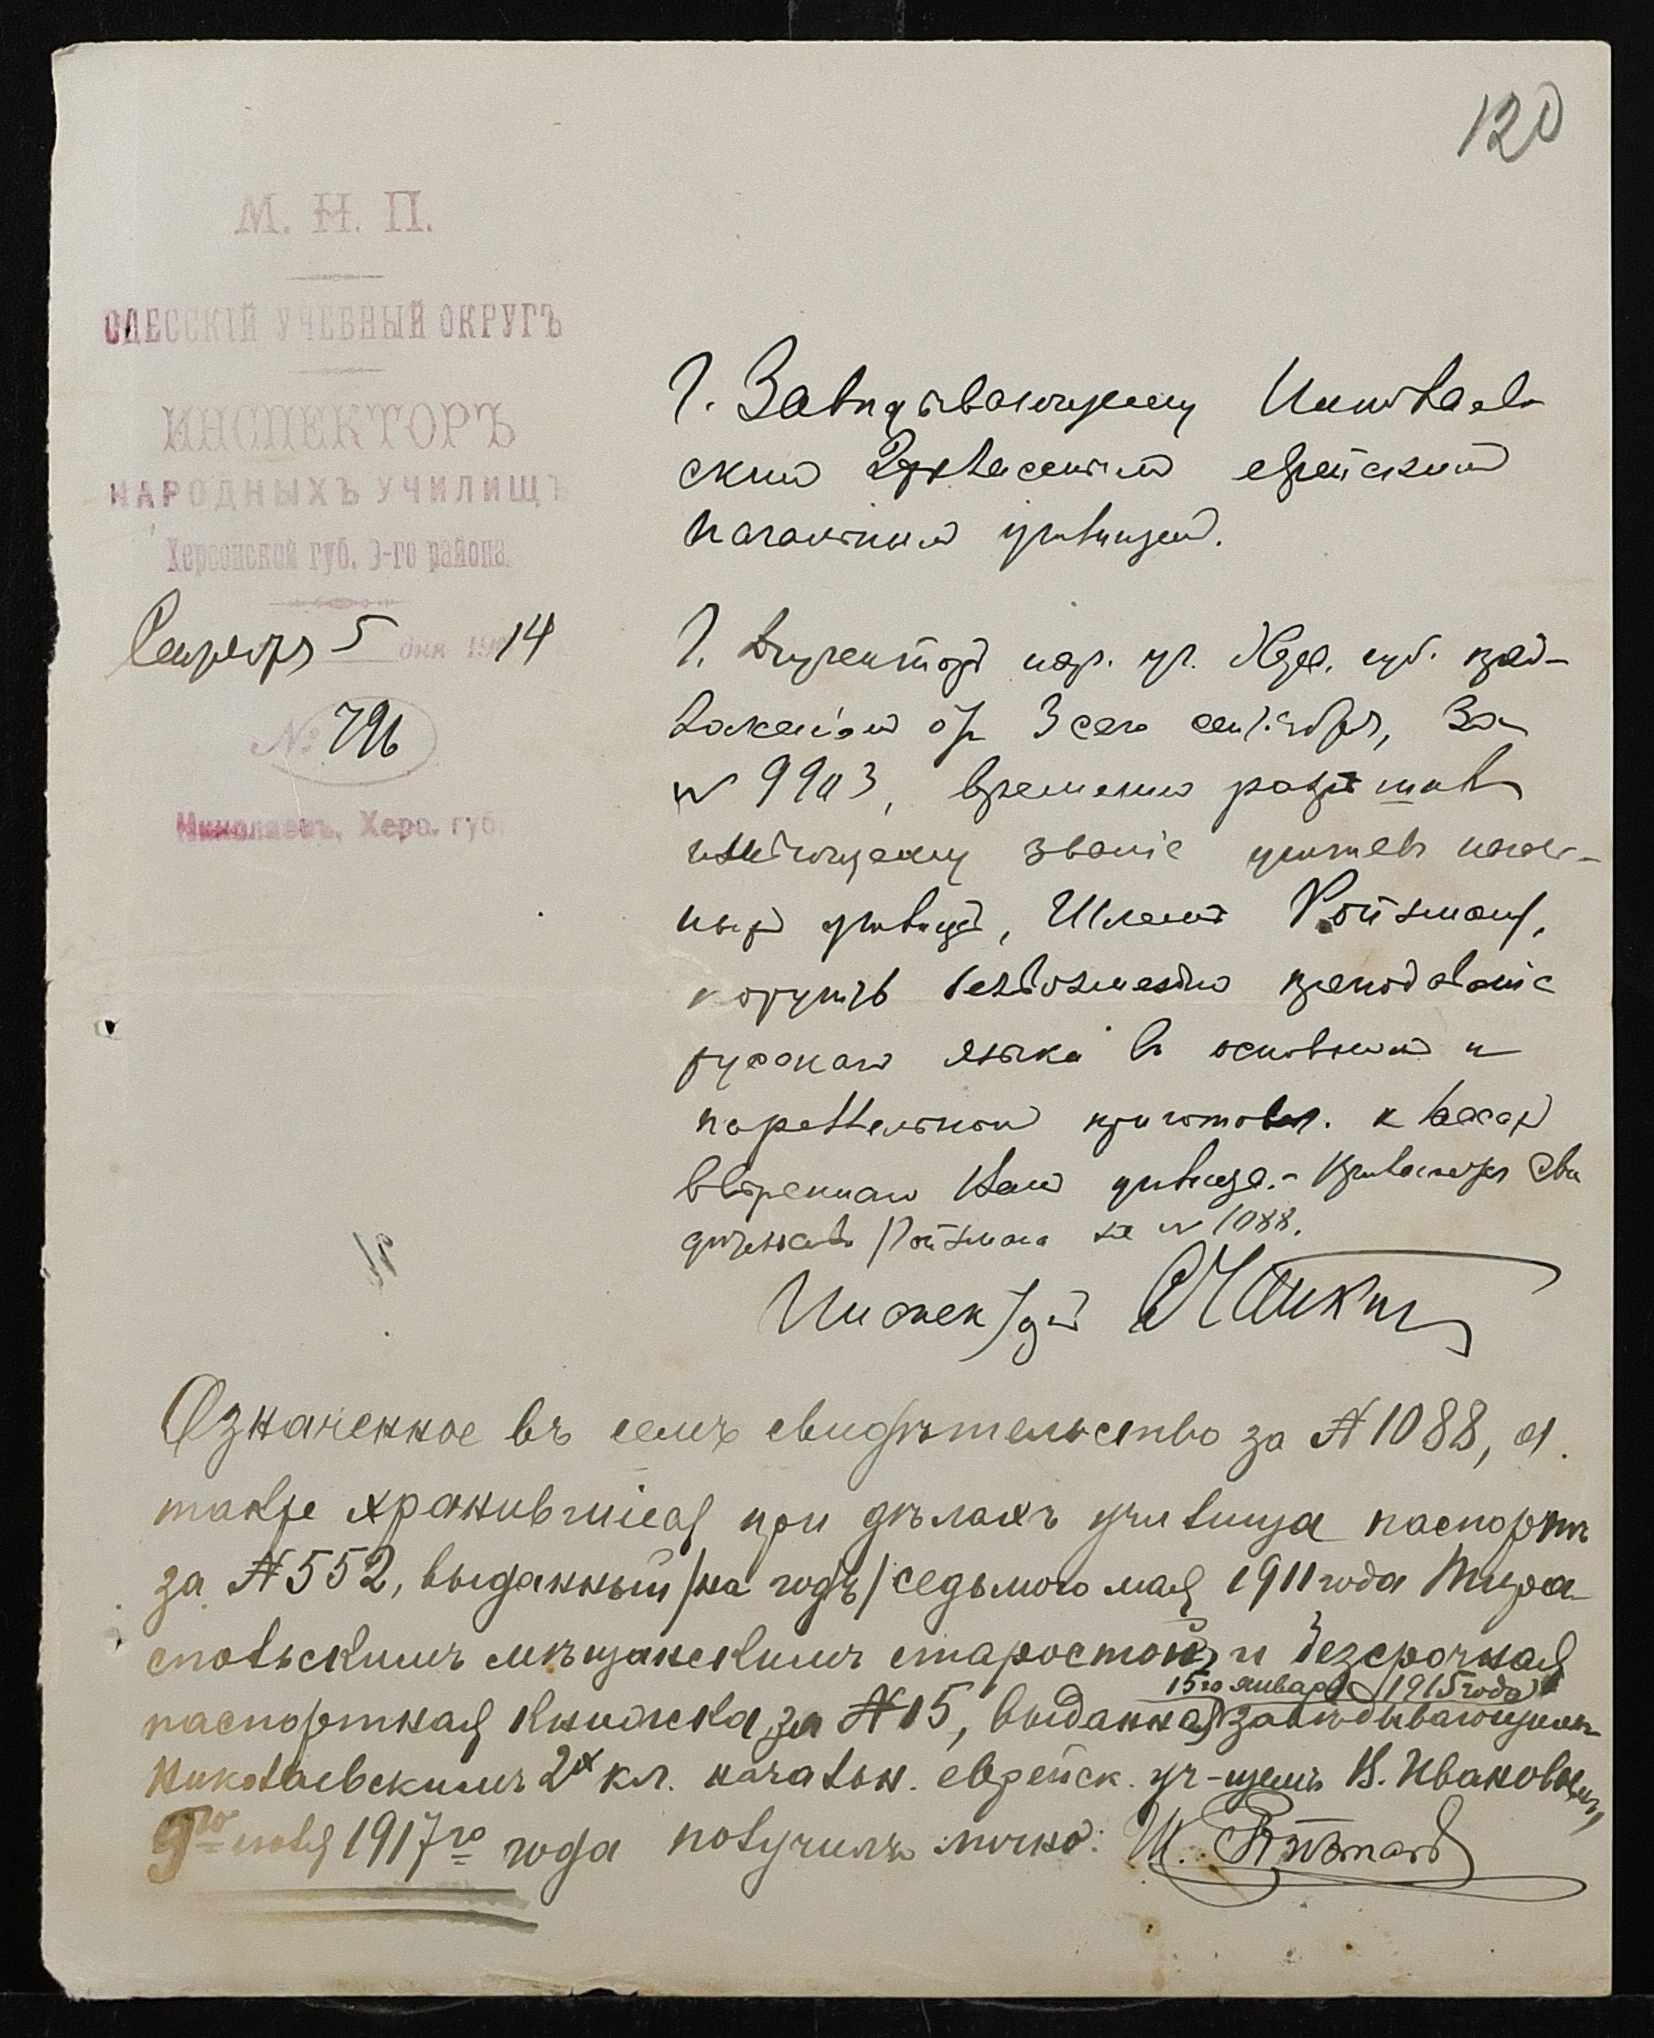 120
М. Н. П.
ОДЕССКІЙ УЧЕБНЫЙ ОКРУГЪ
ИНСПЕКТОРЪ
НАРОДНЫХЪ УЧИЛИЩЪ
Херсонской губ. 3-го района.
5 дня 1914
№ 796
Николаевъ, Херс. губ.
Г. Завѣдывающему Николаев-
скимъ 2хкласснымъ еврейскимъ
начальнымъ училищемъ.
Г. Директоръ нар. уч. Херс. губ. пред-
ложеніемъ отъ 3 сего сентября, за
№ 9903, временно разрѣшилъ
имѣющему званіе учителя началь-
ныхъ училищъ, Шлемѣ Ройзману,
безвозмездно преподаваніе
русскаго языка въ основномъ и
параллельномъ приготовл. классах
ввѣреннаго Вам училища. - Прилагается сви
дѣтельство Ройзмана за № 1088.
Инспекторъ
Означенное въ семъ свидѣтельство за № 1088, а
также хранившіеся при дѣлахъ училища паспортъ
за № 552, выданный /на годъ/ седьмого мая 1911 года Тира-
спольскимъ мѣщанскимъ старостой, и безсрочная
15го января 1915 года
паспортная книжка за № 15, выданная завѣдывающимъ
Николаевскимъ 2х кл. начальн. еврейск. уч-щемъ В. Ивановымъ,
9го іюля 1917го года получилъ лично: Ш. Ройзманъ